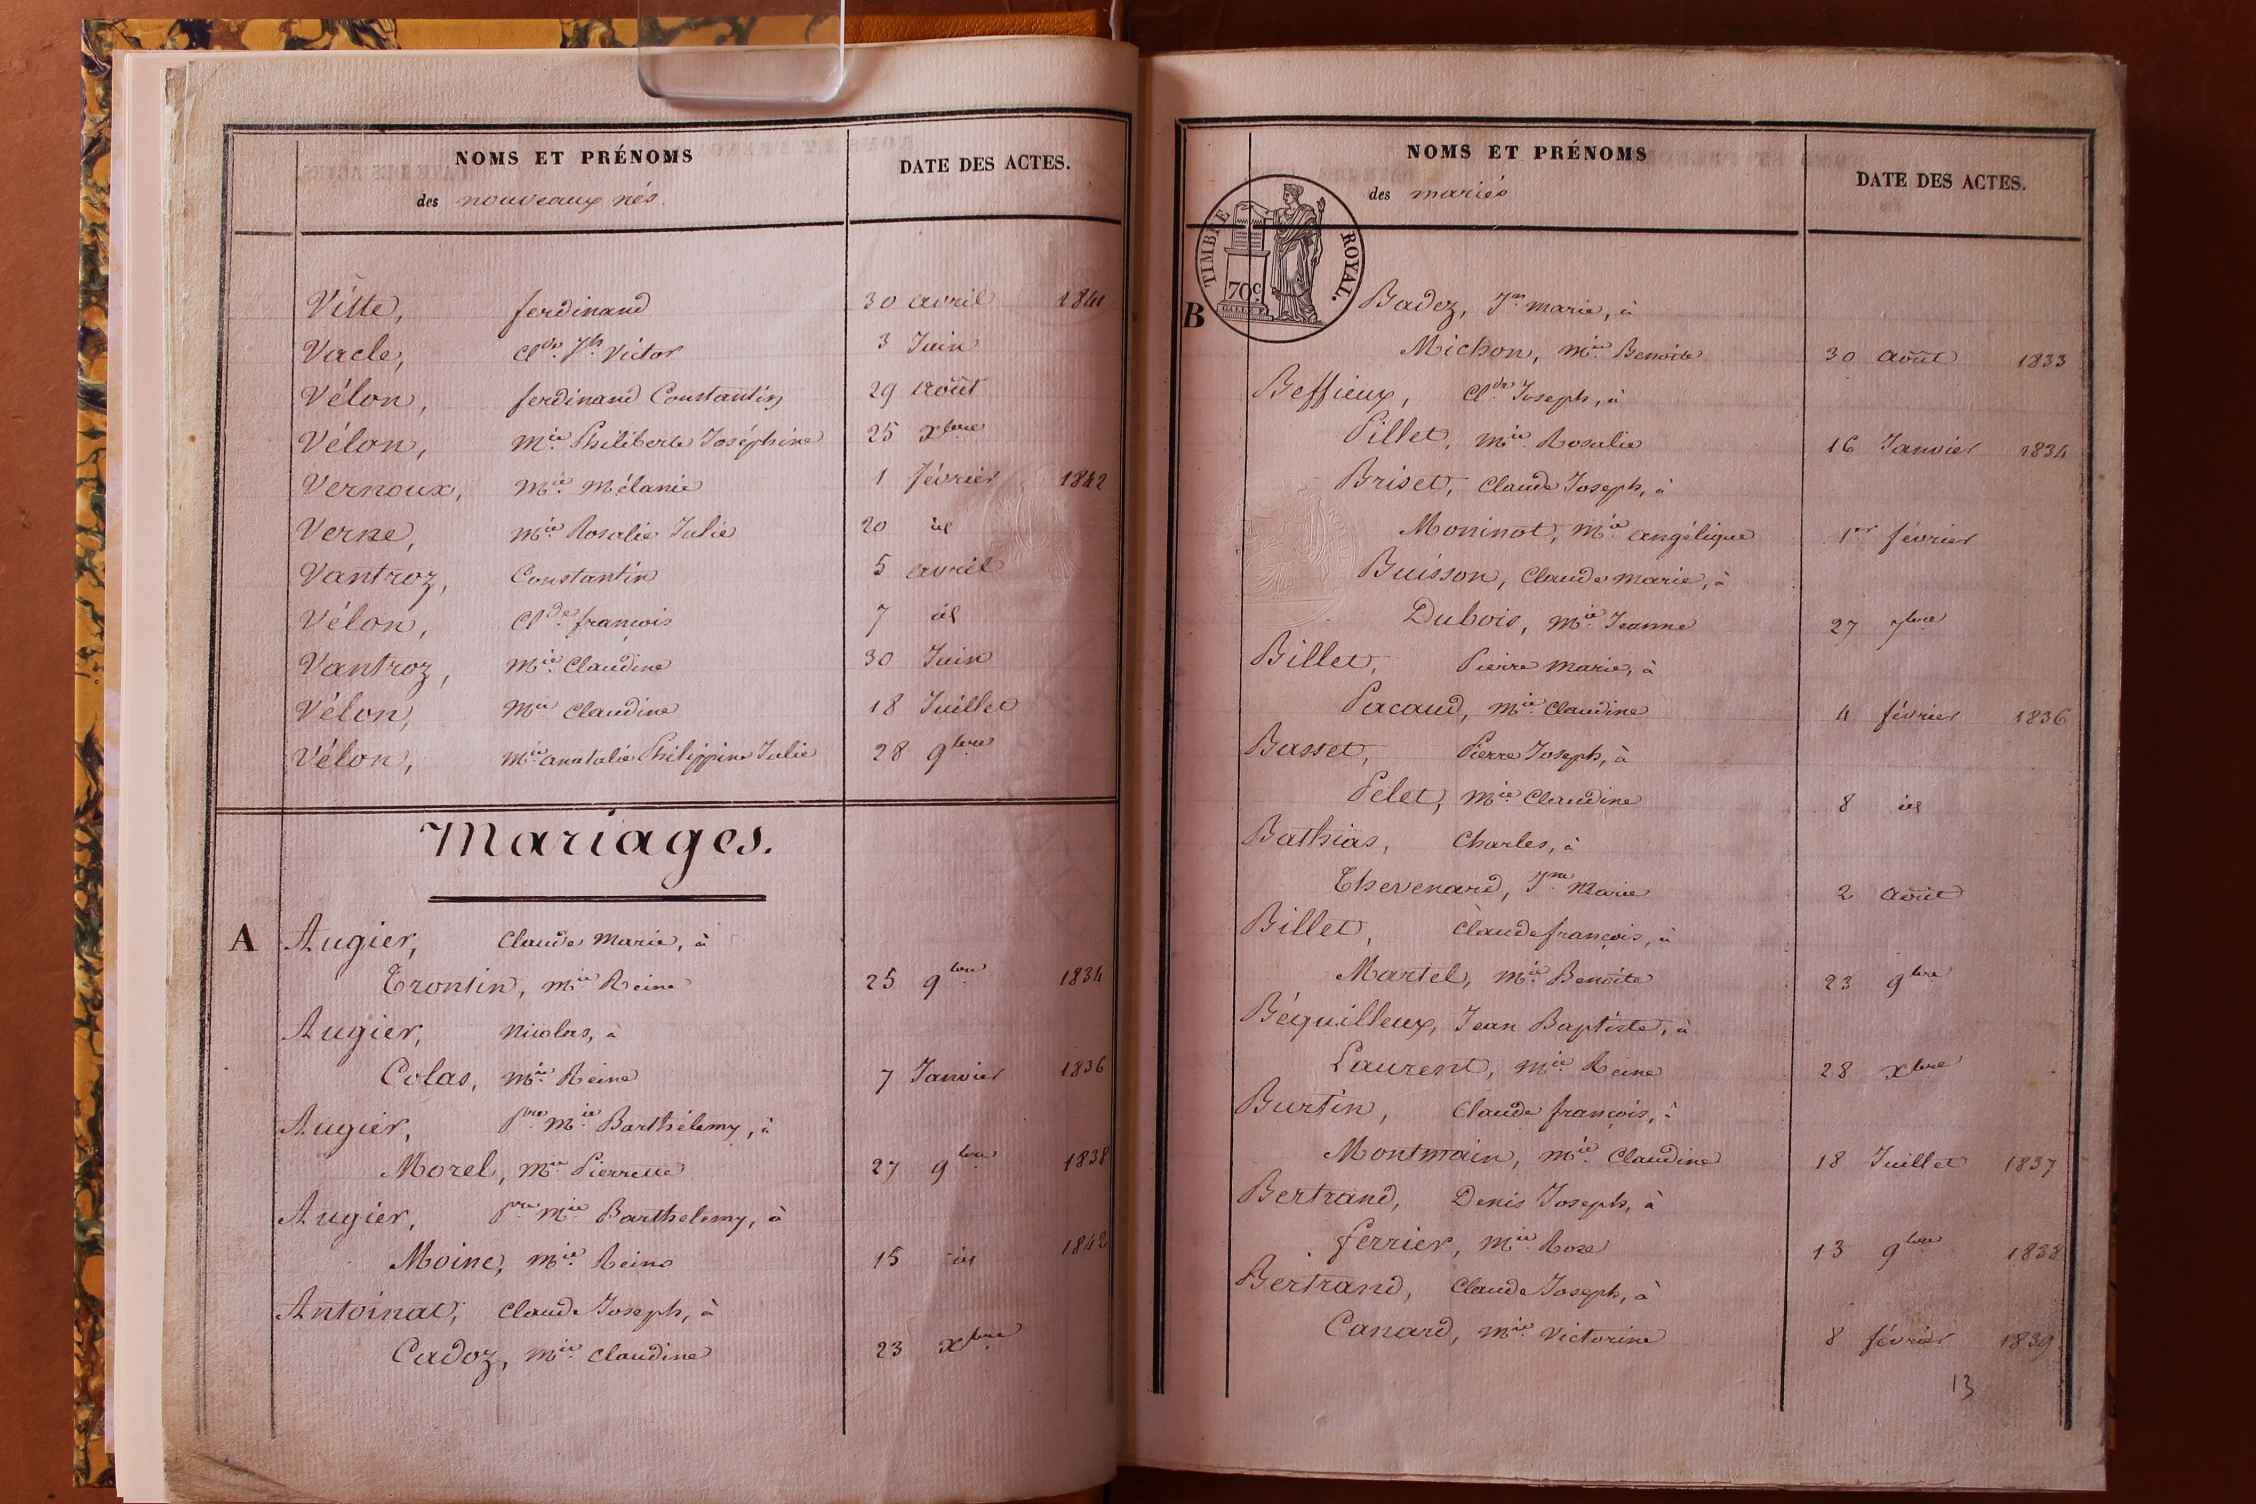 NOMS ET PRÉNOMS
des nouveaux nés.
DATE DES ACTES.
Vitte, ferdinand 30 avril 1841
Vacle, Cl.de J.ph Victor 3 Juin
Vélon, ferdinand Constantin 29 août
Vélon, M.ie Philiberte Joséphine 25 xbre
Vernoux, M.ie Mélanie 1 février 1842
Verne, M.ie Rosalie Julie 20 id
Vantroz, Constantin 5 avril
Vélon, Cl.de françois 7 id
Vantroz, M.ie Claudine 30 Juin
Vélon, M.ie Claudine 18 Juillet
Vélon, M.ie anatalie Philippine Julie 28 9bre
Mariages.
A Augier, Claude Marie, à
Trontin, M.ie Reine 25 9bre 1834
Augier, Nicolas, à
Colas, M.ie Reine 7 Janvier 1836
Augier, P.re M.ie Barthélemy, à
Morel, M.ie Pierrette 27 9bre 1838
Augier, P.re M.ie Barthélemy, à
Moine, M.ie Reine 15 id 1842
Antoinat, Claude Joseph, à
Cadoz, M.ie Claudine 23 xbre
NOMS ET PRÉNOMS
des mariés
DATE DES ACTES.
TIMBRE ROYAL.
70 c.
B Badez, J.n marie, à
Michon, M.ie Benoite 30 août 1833
Beffieux, Cl.de Joseph, à
Pillet, M.ie Rosalie 16 Janvier 1834
Briset, Claude Joseph, à
Moninot, M.ie angélique 1er février
Buisson, Claude marie, à
Dubois, M.ie Jeanne 27 7bre
Billet, Pierre Marie, à
Pacaud, M.ie Claudine 4 février 1836
Basset, Pierre Joseph, à
Pelet, M.ie Claudine 8 id
Bathias, Charles, à
Thevenard, J.ne Marie 2 août
Billet, Claude françois, à
Martel, M.ie Benoite 23 9bre
Béquilleux, Jean Baptiste, à
Laurent, M.ie Reine 28 xbre
Burtin, Claude françois, à
Montmain, M.ie Claudine 18 Juillet 1837
Bertrand, Denis Joseph, à
ferrier, M.ie Rose 13 9bre 1838
Bertrand, Claude Joseph, à
Canard, M.ie Victorine 8 février 1839
13